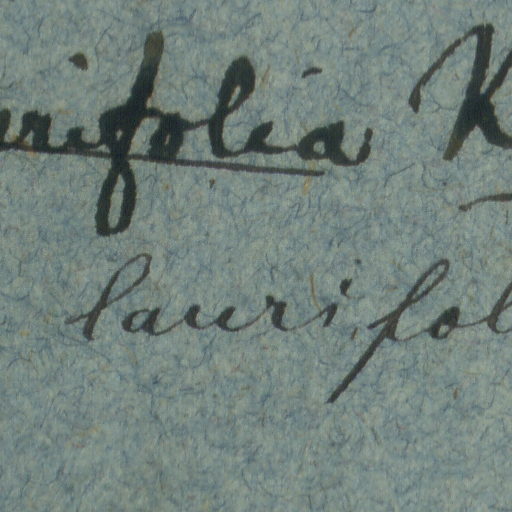 urifolia K
laurifol